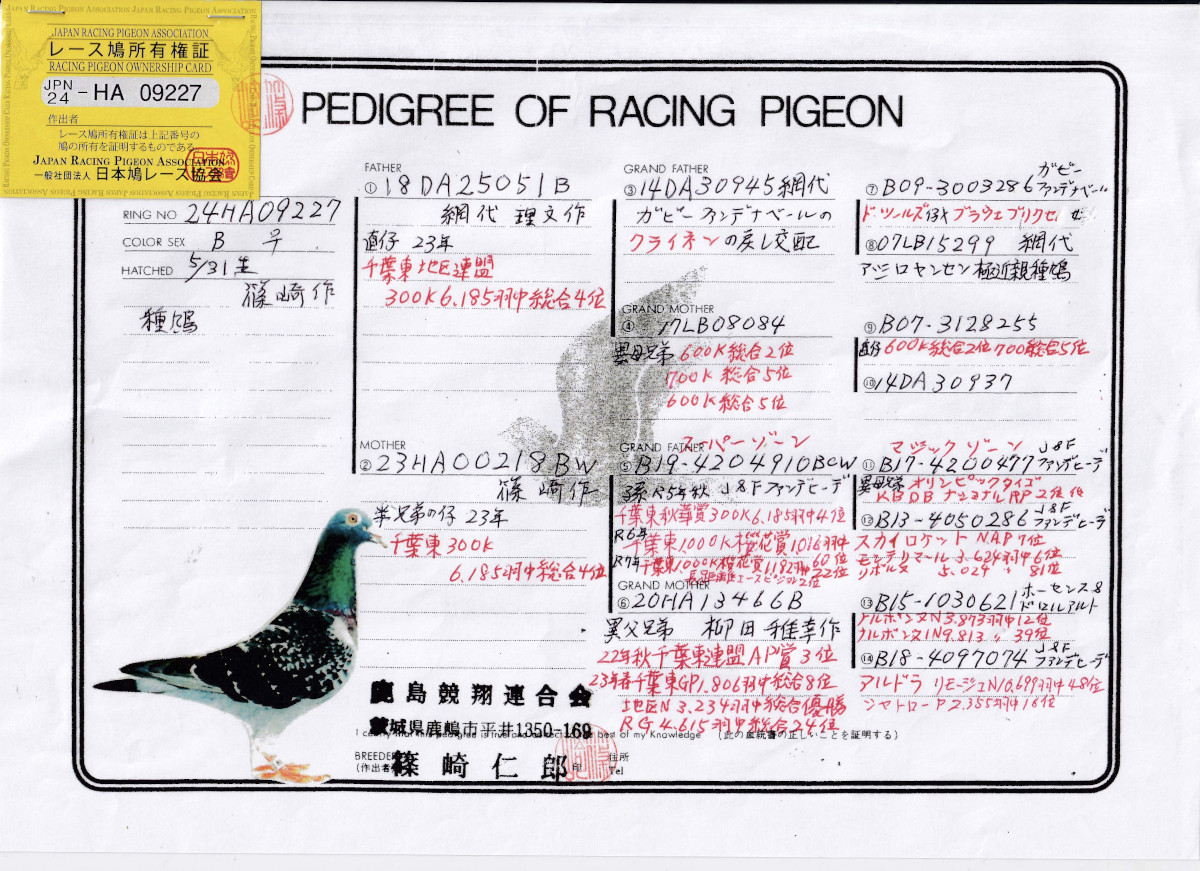 JAPAN RACING PIGEON ASSOCIATION
レース鳩所有権証
RACING PIGEON OWNERSHIP CARD
JPN 24 - HA 09227
作出者
レース鳩所有権証は上記番号の
鳩の所有を証明するものである
JAPAN RACING PIGEON ASSOCIATION
一般社団法人 日本鳩レース協会
PEDIGREE OF RACING PIGEON
RING NO 24HA09227
COLOR SEX B ♀
HATCHED 5/31生
篠崎作
種鳩
FATHER
①18DA25051B
網代 理文作
直仔 23年
千葉東地区連盟
300K6.185羽中総合4位
MOTHER
②23HA00218BW
篠崎作
半兄弟の仔 23年
千葉東300K
6.185羽中総合4位
GRAND FATHER
③14DA30945網代
ガビーファンデナベールの
クライネンの戻し交配
GRAND MOTHER
④17LB08084
異母兄弟 600K総合2位
700K総合5位
600K総合5位
GRAND FATHER スーパーゾーン
⑤B19-4204910BCW
孫 R5年秋 J&Fファンデヒーデ
千葉東秋華賞300K6.185羽中4位
R6年 千葉東1000K桜花賞1016羽中 60位
R7年 千葉東1000K桜花賞1182羽中 22位
GRAND MOTHER
⑥20HA13466B
異父兄弟 柳田雅幸作
22年秋千葉東連盟AP賞3位
23年春千葉東GP1.806羽中総合8位
地区N3.234羽中総合優勝
RG4.615羽中総合24位
⑦B09-3003286 ガビーファンデナベール
⑧07LB15299 網代
アニロヤンセン極近親種鳩
⑨B07-3128255
直仔600K総合2位700総合5位
⑩14DA30937
マジックゾーン
⑪B17-4200477 J&Fファンデヒーデ
異母兄弟 オリンピックタイゴ
KBDBナショナルAP2位
⑫B13-4050286 J&Fファンデヒーデ
スカイロケットNAP7位
モンテリマール3.624羽中6位
リボルヌ 5.029〃 81位
⑬B15-1030621 ホーセンス&ドロルアルト
ナルボンヌN3.873羽中12位
ナルボンヌIN9.813〃39位
⑭B18-4097074 J&Fファンデヒーデ
アルドラ リモージュN10.699羽中48位
シャトローP2.355羽中16位
鹿島競翔連合会
茨城県鹿嶋市平井1350-169
best of my Knowledge (此の血統書の正しいことを証明する)
BREEDER
(作出者) 篠崎仁郎 印
住所
Tel